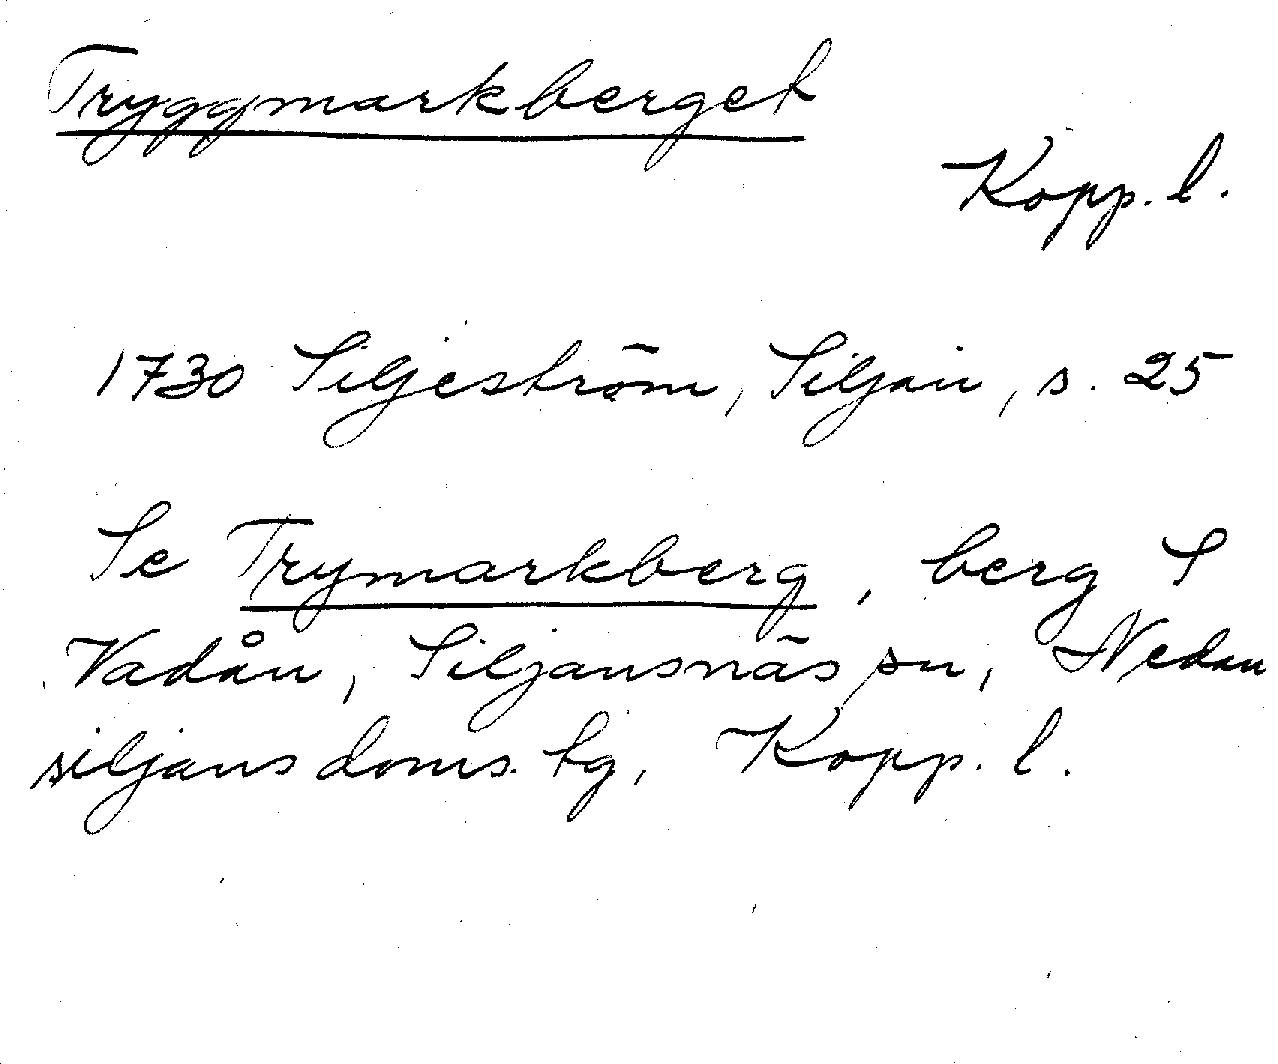 Tryggmarkberget
Kopp. l.
1730 Siljeström, Siljan, s. 25
Se Trymarkberg, berg S
Vadån, Siljansnäs sn, Nedan
siljans doms. tg, Kopp. l.